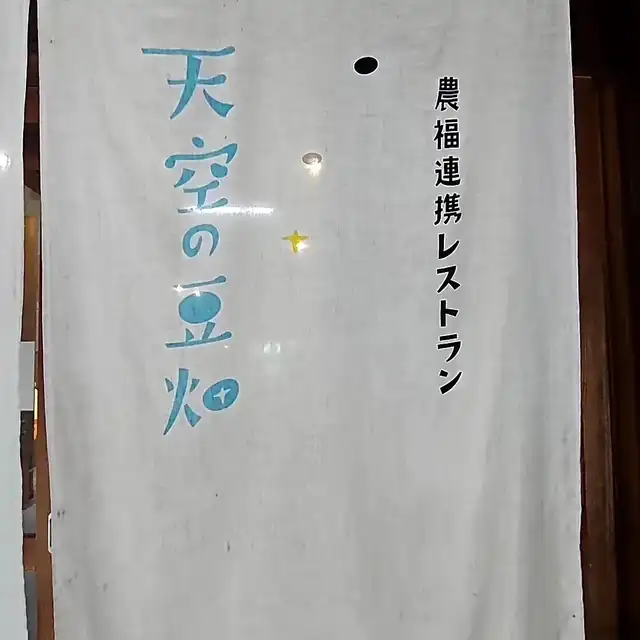 農福連携レストラン
天空の豆畑